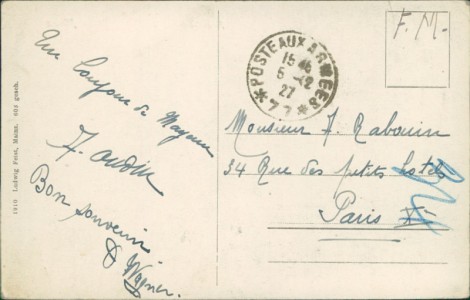 Un bonjour de Mayence
J. Oudin
Bon souvenir
Wagner.
1910 Ludwig Frost, Mainz. 694 gesch.
F. M.
POSTE AUX ARMEES
15 45
5 -12
27
* 77 *
Monsieur J. Rabouin
34 Rue des petits hotels
Paris X